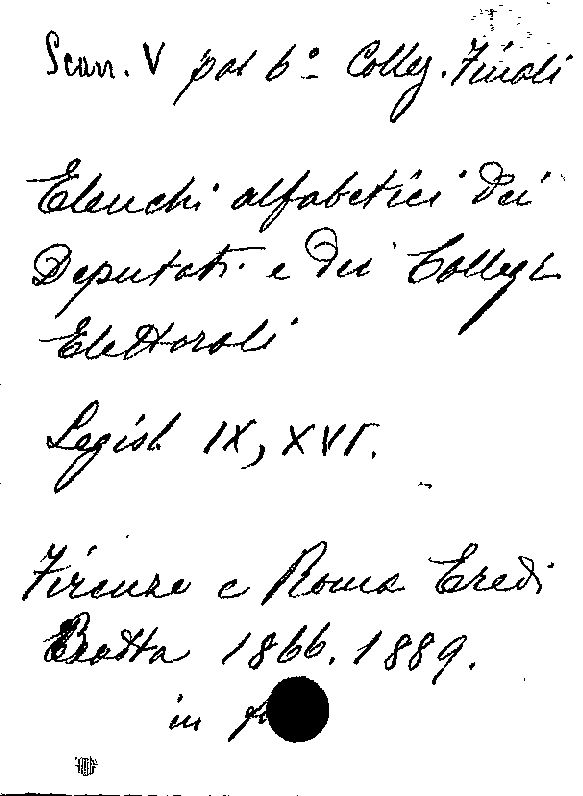 Scan. V pal 6º Colleg. Finali
Elenchi alfabetici dei
Deputati e dei Collegi
Elettorali
Legisl. IX, XVI.
Firenze e Roma Eredi
Botta 1866. 1889.
in